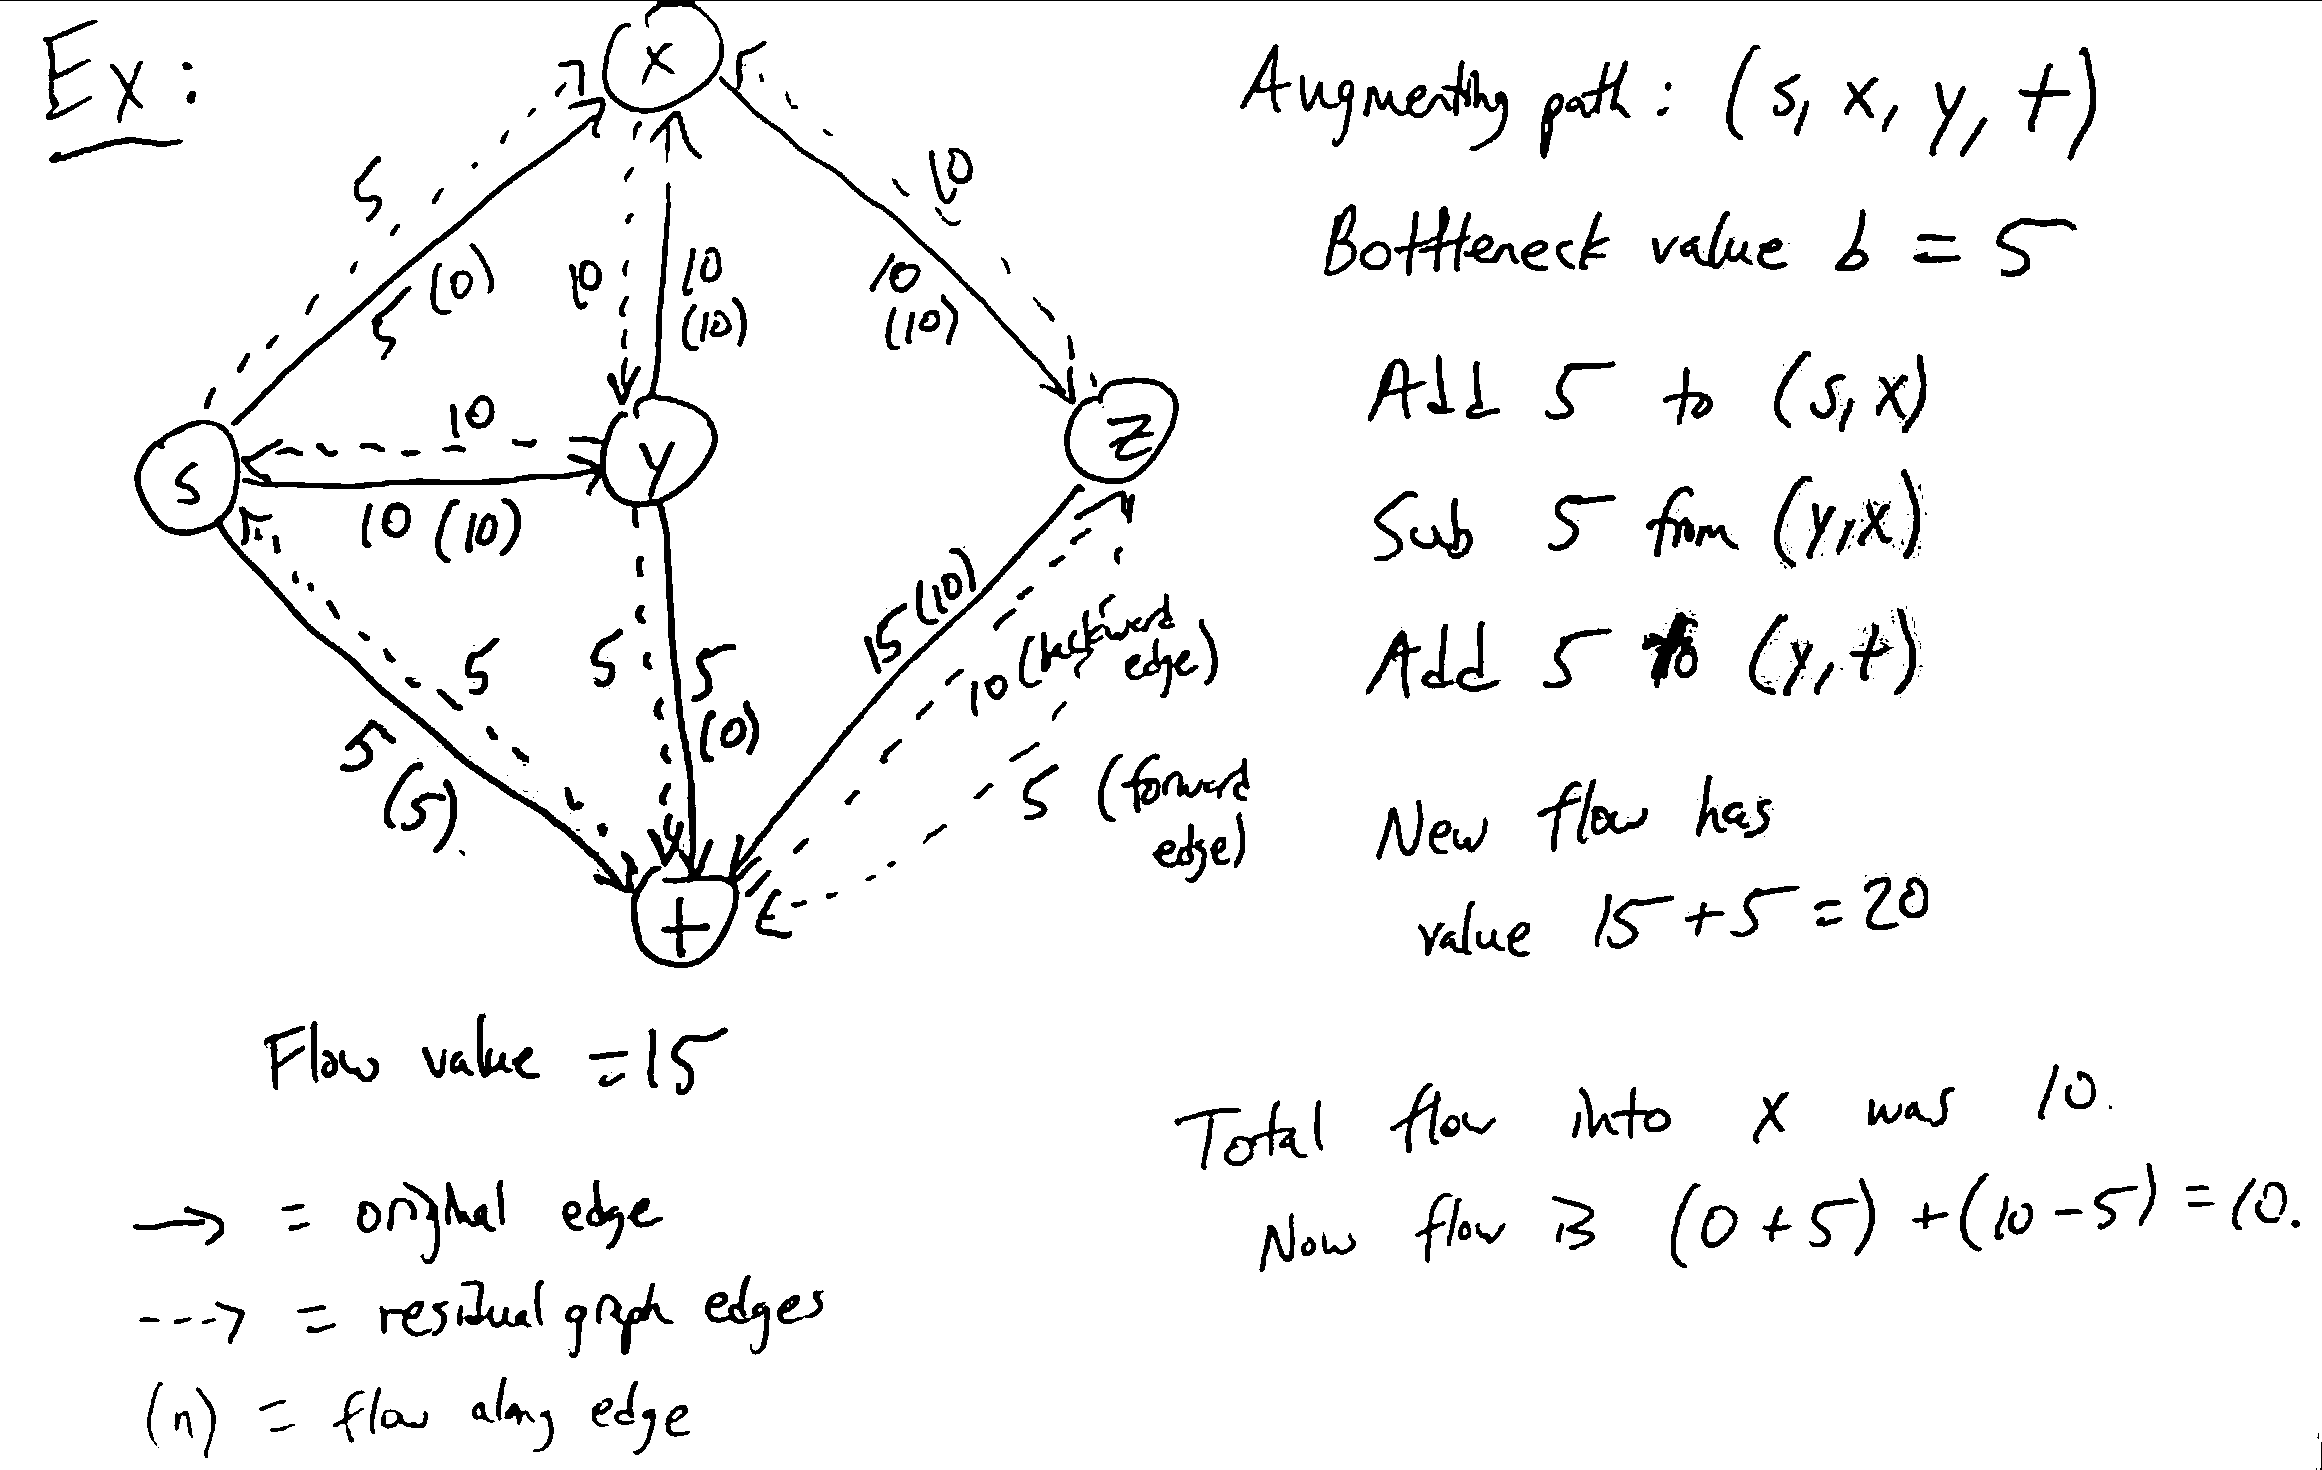 Ex:
x
5
10
5 (0)
10
10
(10)
10
(10)
s
10
y
z
10 (10)
5
5
5
(0)
15 (10)
10 (backward
edge)
5 (5).
5 (forward
edge)
t
Flow value = 15
→ = original edge
---> = residual graph edges
(n) = flow along edge
Augmenting path: (s, x, y, t)
Bottleneck value b = 5
Add 5 to (s, x)
Sub 5 from (y, x)
Add 5 to (y, t)
New flow has
value 15 + 5 = 20
Total flow into x was 10.
Now flow is (0 + 5) + (10 - 5) = 10.